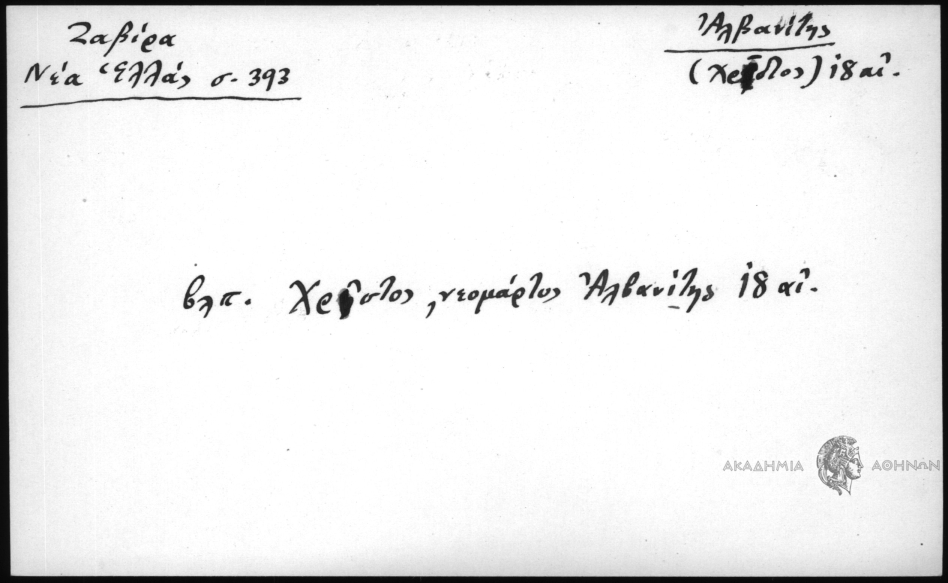 Ζαβίρα
Νέα Ἑλλάς σ. 393
Ἀλβανίτης
(Χρῖστος) ιδ αἰ.
βλπ. Χρῖστος, νεομάρτος Ἀλβανίτης ιδ αἰ.
ΑΚΑΔΗΜΙΑ ΑΘΗΝΩΝ